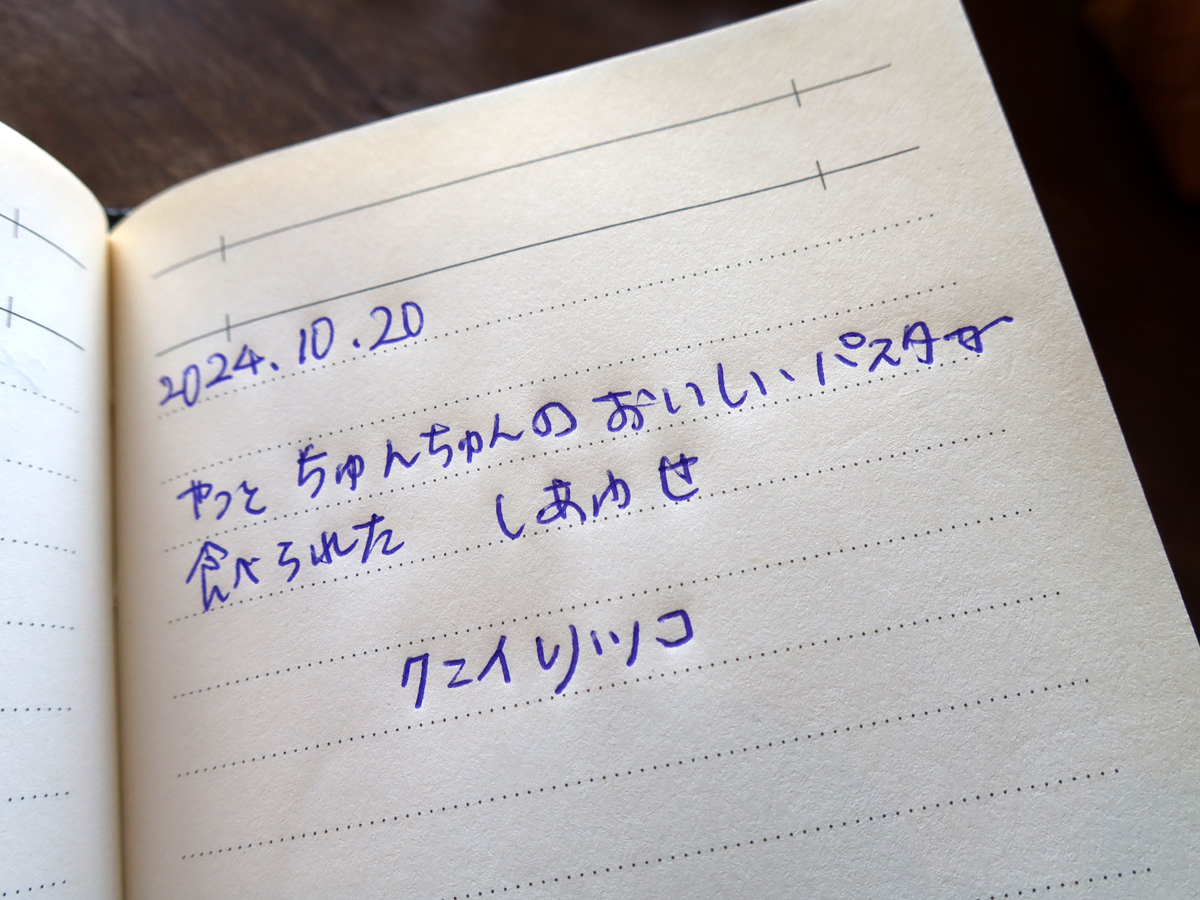 2024.10.20
やっと ちゅんちゅんの おいしい、パスタが
食べられた しあわせ
クニイ リツコ